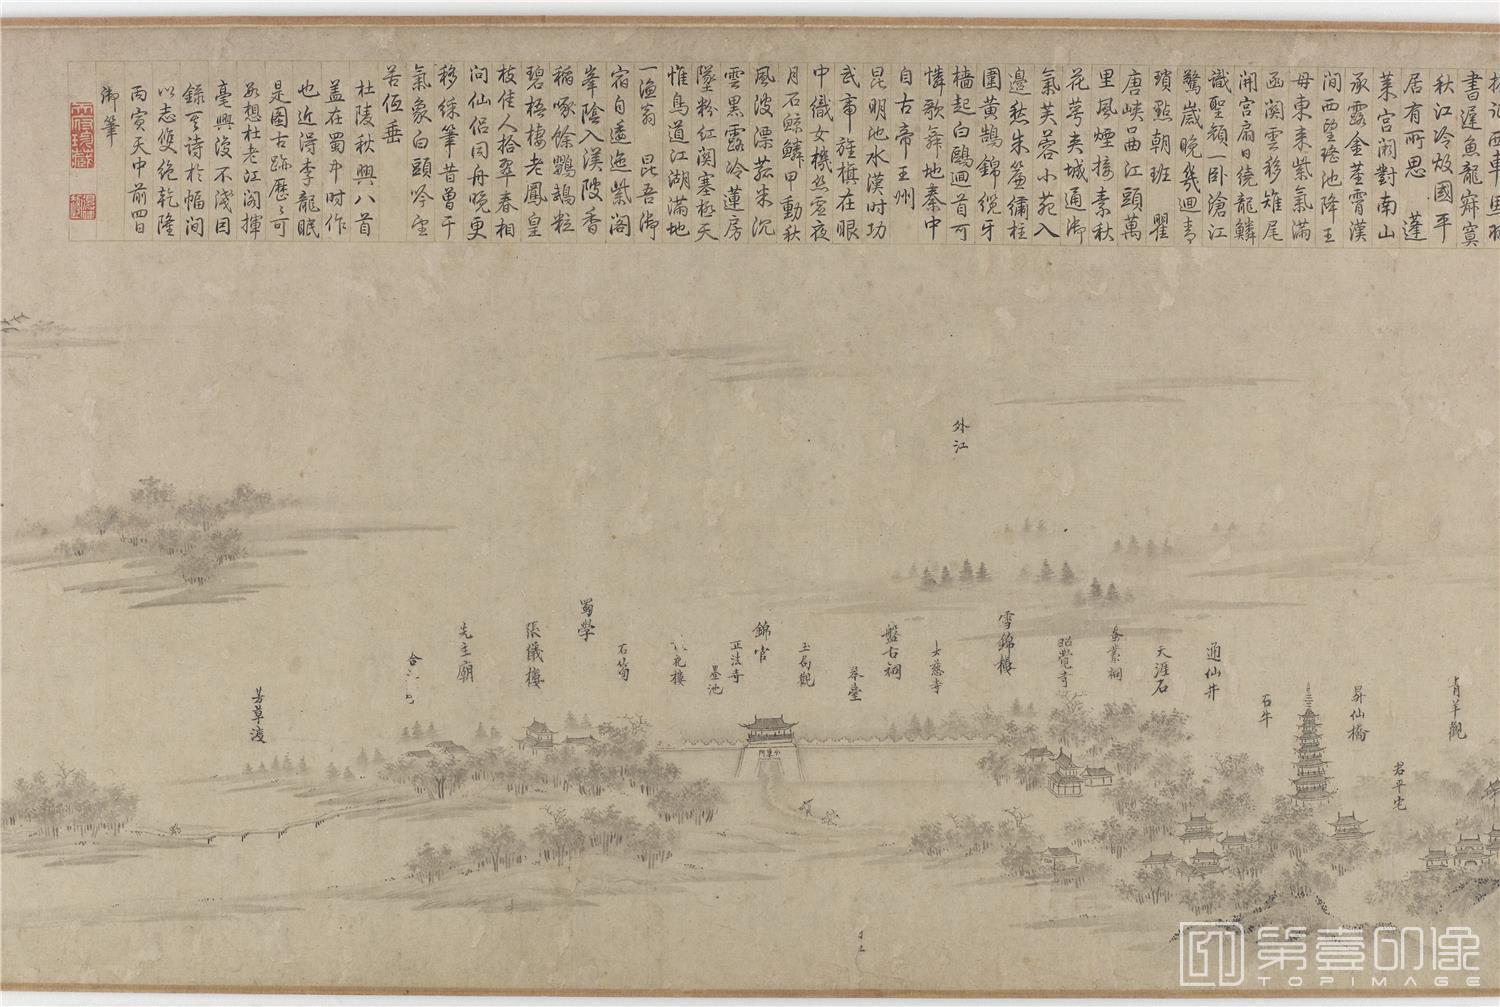 書遲魚龍寂寞
秋江冷故國平
居有所思　蓬
萊宮闕對南山
承露金莖霄漢
間西望瑤池降王
母東来紫氣滿
函關雲移雉尾
開宮扇日繞龍鱗
識聖顏一卧滄江
驚歲晚幾迴青
瑣點朝班　瞿
唐峽口曲江頭萬
里風煙接素秋
花萼夹城通御
氣芙蓉小苑入
邊愁朱簾繡柱
圍黄鵠錦纜牙
檣起白鷗迴首可
憐歌舞地秦中
自古帝王州
昆明池水漢時功
武帝旌旗在眼
中織女機絲虛夜
月石鯨鱗甲動秋
風波漂菰米沉
雲黑露冷蓮房
墜粉紅關塞極天
惟鳥道江湖滿地
一漁翁　昆吾御
宿自逶迤紫閣
峯陰入渼陂香
稻啄餘鸚鵡粒
碧梧棲老鳳皇
枝佳人拾翠春相
问仙侣同舟晚更
移綵筆昔曾干
氣象白頭吟望
苦低垂
杜陵秋興八首
盖在蜀中時作
也近淂李龍眠
是圖古跡歷〻可
想杜老江阁揮
毫興復不淺因
錄其詩於幅间
以志雙絶乾隆
丙寅天中前四日
御筆
外江
青羊觀
君平宅
昇仙橋
石牛
通仙井
天涯石
昭覺寺
雪錦樓
大慈寺
盤古祠
琴臺
玉局觀
錦官
正法寺
墨池
石筍
蜀學
張儀樓
先主廟
芳草渡
第壹印像
TOPIMAGE